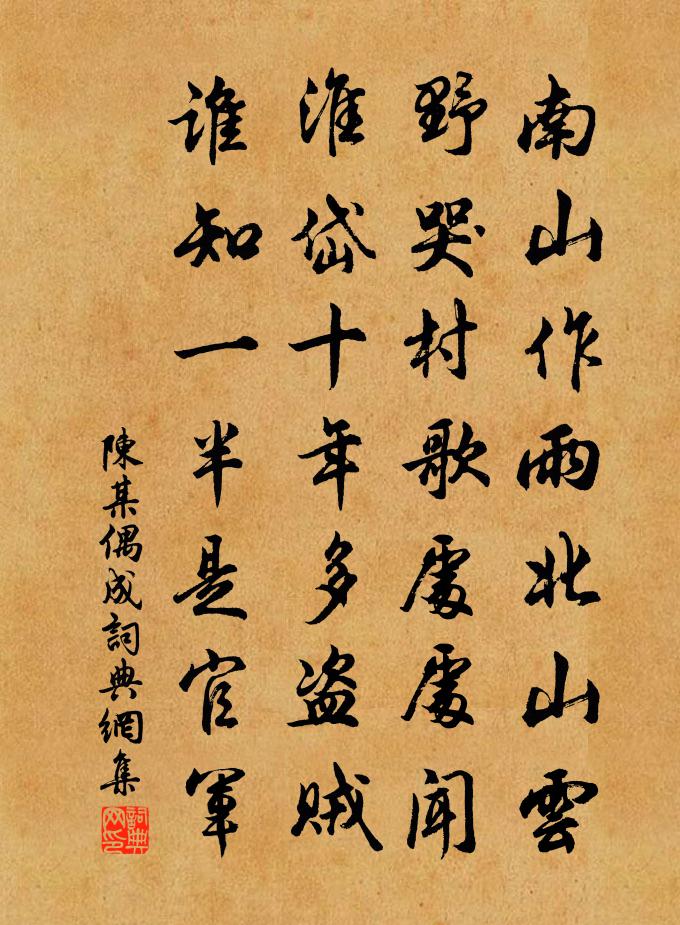 南山作雨北山雲
野哭村歌處處聞
淮岱十年多盗賊
誰知一半是官軍
陳某偶成詞典網集
詞典網印